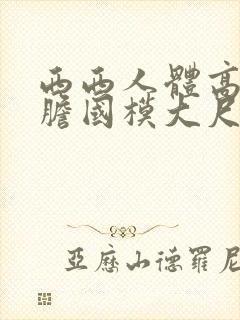 西西人體高
膽國模大尺
亞歷山德羅尼